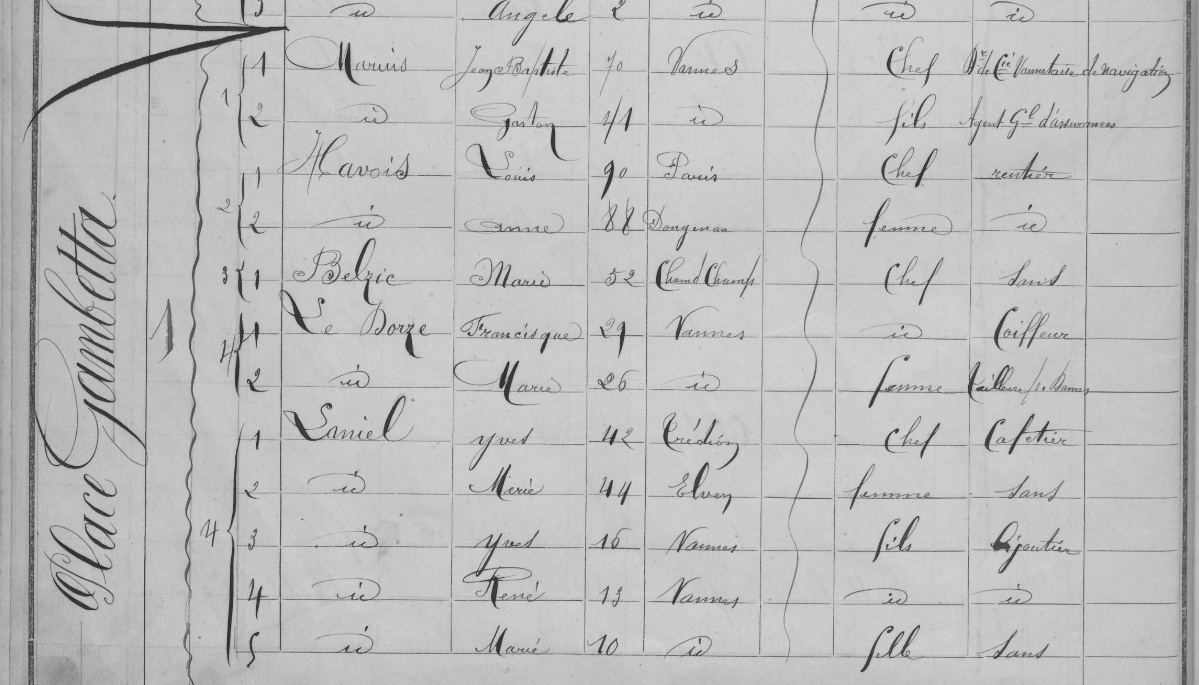 5 id Angele 2 id id id
Place Gambetta
1
1 1 Marius Jean Baptiste 70 Vannes Chef Dr de Cie Vannetaise de navigation
2 id Gaston 41 id fils Agent Gl d'assurances
2 1 Havois Louis 90 Paris Chef rentier
2 id anne 88 femme id
3 1 Belzic Marie 52 Chef sans
4 1 Le Dorze Francisque 29 Vannes id Coiffeur
2 id Marie 26 id femme tailleuse pr Dames
4 1 Laniel yves 42 Trédion Chef Cafetier
2 id Marie 44 Elven femme sans
3 id yves 16 Vannes fils bijoutier
4 id René 13 Vannes id id
5 id Marie 10 id fille sans